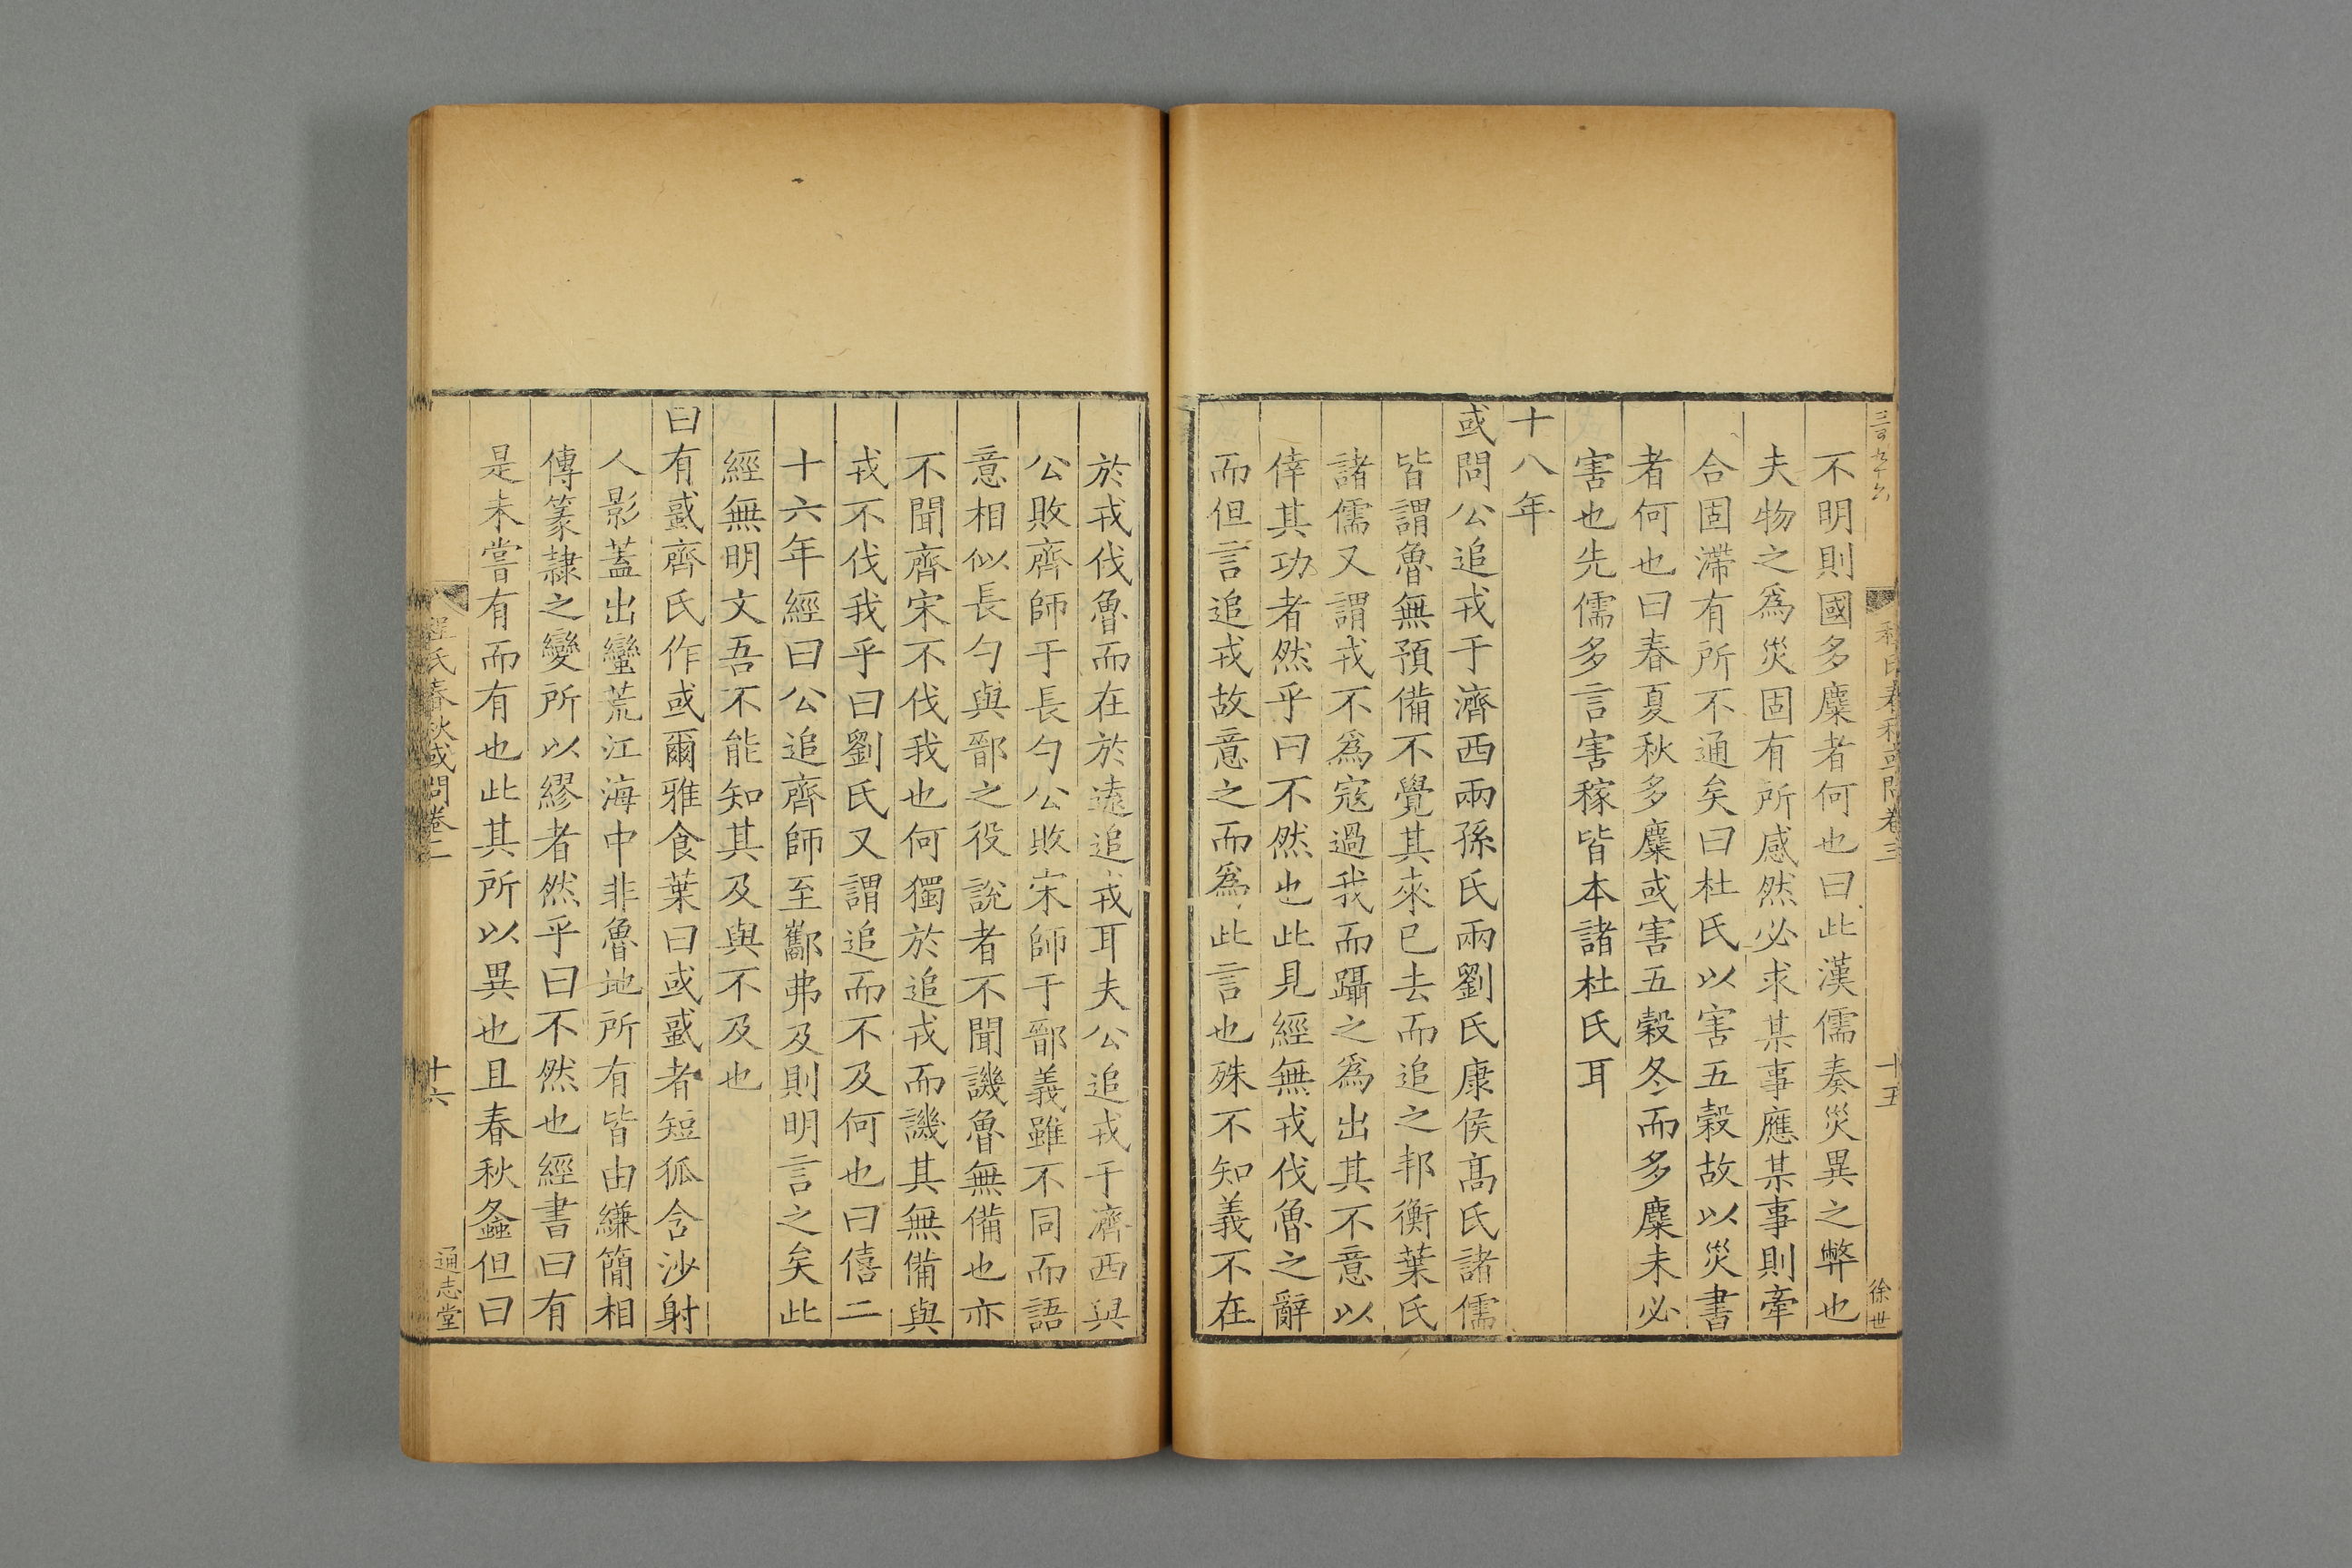 不明則國多麋者何也曰此漢儒奏災異之弊也
夫物之爲災固有所感然必求某事應某事則牽
合固滯有所不通矣曰杜氏以害五穀故以災書
者何也曰春夏秋多麋或害五穀冬而多麋未必
害也先儒多言害稼皆本諸杜氏耳
十八年
或問公追戎于濟西兩孫氏兩劉氏康侯髙氏諸儒
皆謂魯無預備不覺其來已去而追之邦衡葉氏
諸儒又謂戎不爲寇過我而躡之爲出其不意以
倖其功者然乎曰不然也此見經無戎伐魯之辭
而但言追戎故意之而爲此言也殊不知義不在
徐世
十五
於戎伐魯而在於遠追戎耳夫公追戎于濟西與
公敗齊師于長勺公敗宋師于鄑義雖不同而語
意相似長勺與鄑之役說者不聞譏魯無備也亦
不聞齊宋不伐我也何獨於追戎而譏其無備與
戎不伐我乎曰劉氏又謂追而不及何也曰僖二
十六年經曰公追齊師至酅弗及則明言之矣此
經無明文吾不能知其及與不及也
曰有蜮齊氏作或爾雅食葉曰或蜮者短狐含沙射
人影蓋出蠻荒江海中非魯地所有皆由縑簡相
傳篆隷之變所以繆者然乎曰不然也經書曰有
是未嘗有而有也此其所以異也且春秋螽但曰
程氏春秋或問卷三
十六
通志堂